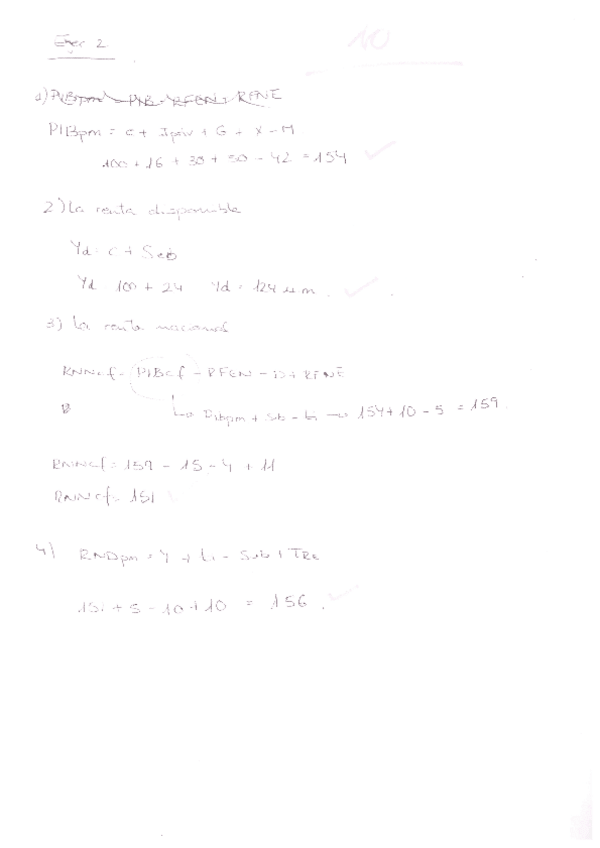 Ejer 2.
10
1) PIBpm = PIB - RFEN + RFNE
PIBpm = C + Ipriv + G + X - M
100 + 16 + 30 + 50 - 42 = 154
2) La renta disponible
Yd = C + Seb
Yd 100 + 24 Yd = 124 u.m.
3) La renta nacional
RNNcf = PIBcf - RFEN - D + RFNE
PIBpm + Sub - Ti → 154 + 10 - 5 = 159.
RNNcf = 159 - 15 - 4 + 11
RNNcf = 151
4) RNDpm = Y + Ti - Sub + TRE
151 + 5 - 10 + 10 = 156.